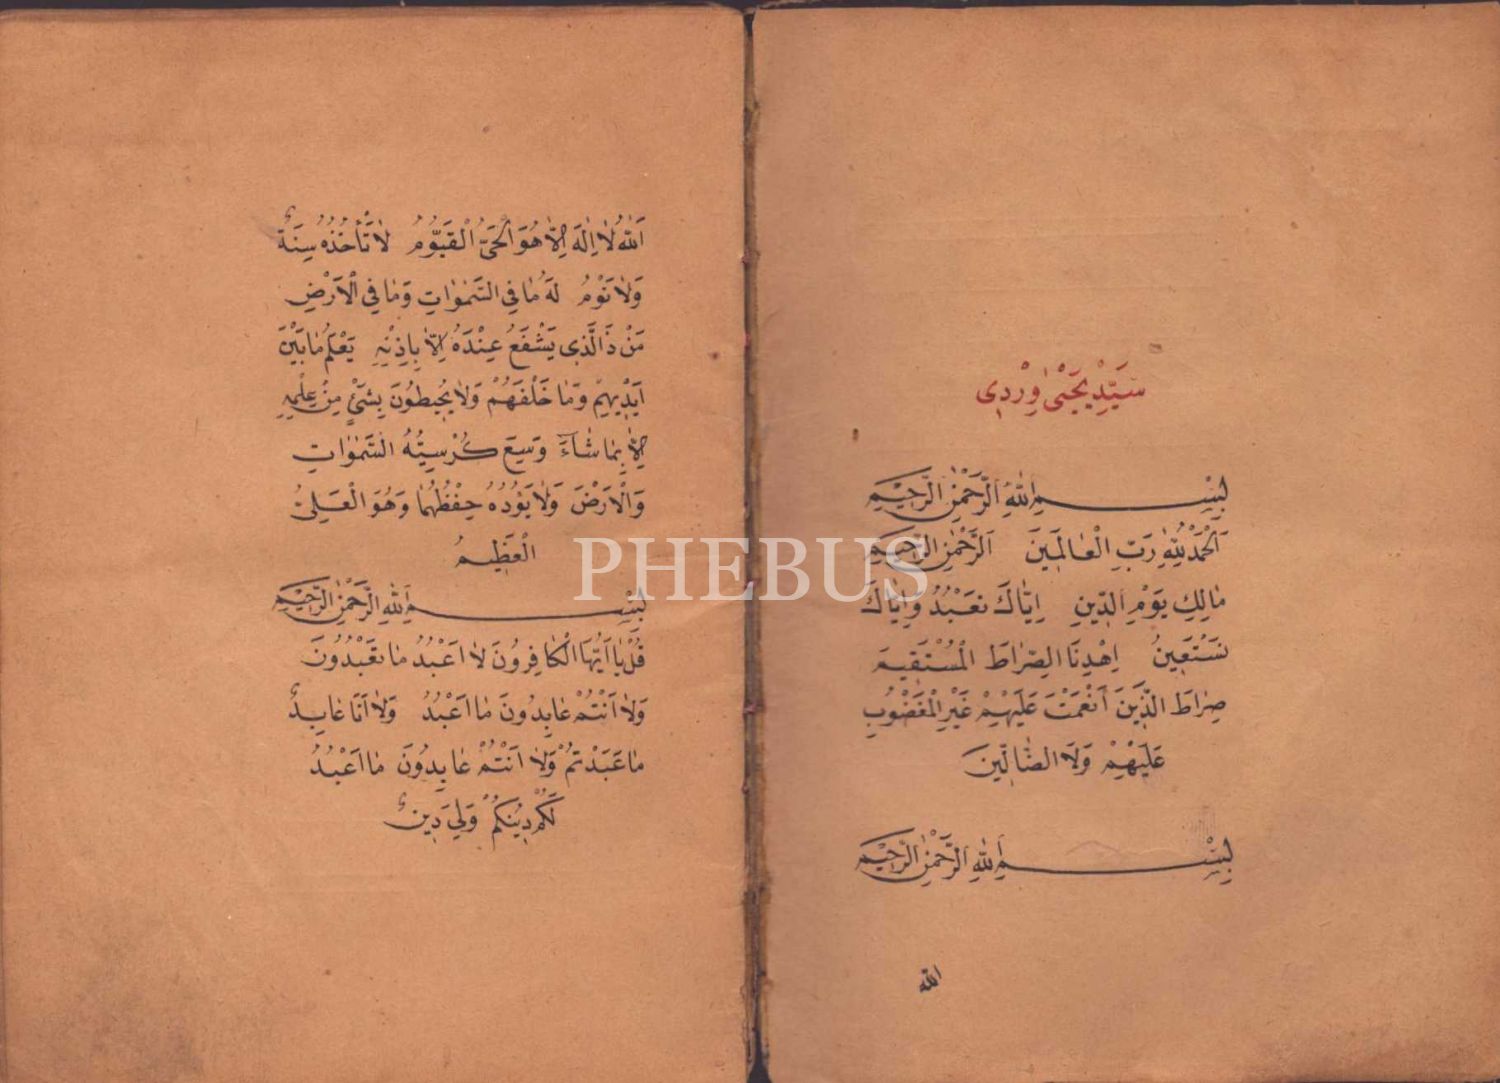 سَيِّدْ يَحْيٰى وِرْدِى
بِسْمِ اللّٰهِ الرَّحْمٰنِ الرَّحِيْمِ
اَلْحَمْدُ لِلّٰهِ رَبِّ الْعَالَمِينَ اَلرَّحْمٰنِ الرَّحِيمِ
مَالِكِ يَوْمِ الدِّينِ اِيَّاكَ نَعْبُدُ وَاِيَّاكَ
نَسْتَعِينُ اِهْدِنَا الصِّرَاطَ الْمُسْتَقِيمَ
صِرَاطَ الَّذِينَ اَنْعَمْتَ عَلَيْهِمْ غَيْرِ الْمَغْضُوبِ
عَلَيْهِمْ وَلَا الضَّالِّينَ
بِسْمِ اللّٰهِ الرَّحْمٰنِ الرَّحِيْمِ
الله
اَللّٰهُ لَا اِلٰهَ اِلَّا هُوَ الْحَىُّ الْقَيُّومُ لَا تَأْخُذُهُ سِنَةٌ
وَلَا نَوْمٌ لَهُ مَا فِي السَّمٰوَاتِ وَمَا فِي الْاَرْضِ
مَنْ ذَا الَّذِى يَشْفَعُ عِنْدَهُ اِلَّا بِاِذْنِهِ يَعْلَمُ مَا بَيْنَ
اَيْدِيهِمْ وَمَا خَلْفَهُمْ وَلَا يُحِيطُونَ بِشَىْءٍ مِنْ عِلْمِهِ
اِلَّا بِمَا شَاءَ وَسِعَ كُرْسِيُّهُ السَّمٰوَاتِ
وَالْاَرْضَ وَلَا يَؤُدُهُ حِفْظُهُمَا وَهُوَ الْعَلِىُّ
الْعَظِيمُ
بِسْمِ اللّٰهِ الرَّحْمٰنِ الرَّحِيْمِ
قُلْ يَا اَيُّهَا الْكَافِرُونَ لَا اَعْبُدُ مَا تَعْبُدُونَ
وَلَا اَنْتُمْ عَابِدُونَ مَا اَعْبُدُ وَلَا اَنَا عَابِدٌ
مَا عَبَدْتُمْ وَلَا اَنْتُمْ عَابِدُونَ مَا اَعْبُدُ
لَكُمْ دِينُكُمْ وَلِيَ دِينٌ
PHEBUS